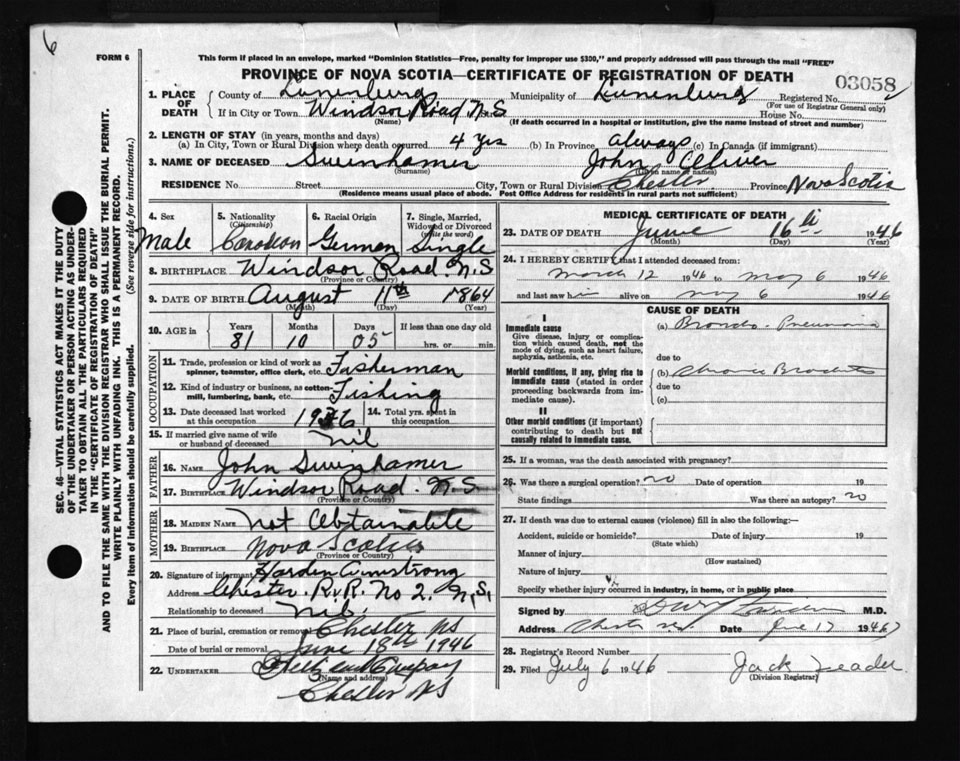 6
FORM 6
This form if placed in an envelope, marked "Dominion Statistics—Free, penalty for improper use $300," and properly addressed will pass through the mail "FREE"
PROVINCE OF NOVA SCOTIA—CERTIFICATE OF REGISTRATION OF DEATH
03058
1. PLACE OF DEATH
County of Lunenburg Municipality of Lunenburg Registered No.
(For use of Registrar General only)
If in City or Town Windsor Road N.S House No.
(Name) (If death occurred in a hospital or institution, give the name instead of street and number)
2. LENGTH OF STAY (in years, months and days)
(a) In City, Town or Rural Division where death occurred 4 yrs (b) In Province always (c) In Canada (if immigrant)
3. NAME OF DECEASED Swinhamer John Oliver
(Surname) (Given name or names)
RESIDENCE No. Street City, Town or Rural Division Chester. Province Nova Scotia
(Residence means usual place of abode. Post Office Address for residents in rural parts not sufficient)
4. Sex
Male
5. Nationality
(Citizenship)
Canadian
6. Racial Origin
German
7. Single, Married, Widowed or Divorced
(write the word)
Single
8. BIRTHPLACE Windsor Road. N.S
(Province or Country)
9. DATE OF BIRTH August 11th 1864
(Month) (Day) (Year)
10. AGE in
Years Months Days If less than one day old
81 10 05 hrs. or min.
OCCUPATION
11. Trade, profession or kind of work as
spinner, teamster, office clerk, etc. Fisherman
12. Kind of industry or business, as cotton-
mill, lumbering, bank, etc. Fishing
13. Date deceased last worked
at this occupation
14. Total yrs. spent in
this occupation
15. If married give name of wife
or husband of deceased nil
FATHER
16. NAME John Swinhamer
17. BIRTHPLACE Windsor Road. N.S
(Province or Country)
MOTHER
18. MAIDEN NAME not Obtainable
19. BIRTHPLACE Nova Scotia
(Province or Country)
20. Signature of informant Harden Armstrong
Address Chester. R.R. No 2. N.S.
Relationship to deceased nil.
21. Place of burial, cremation or removal Chester NS
Date of burial or removal June 18th 1946
22. UNDERTAKER Company
(Name and address)
Chester NS
MEDICAL CERTIFICATE OF DEATH
23. DATE OF DEATH June 16th 1946
(Month) (Day) (Year)
24. I HEREBY CERTIFY that I attended deceased from:
March 12 1946 to May 6 1946
and last saw him alive on May 6 1946
CAUSE OF DEATH
I
Immediate cause
Give disease, injury or complication which caused death, not the mode of dying, such as heart failure, asphyxia, asthenia, etc.
(a) Broncho-Pneumonia
due to
Morbid conditions, if any, giving rise to immediate cause (stated in order proceeding backwards from immediate cause).
(b) Chronic Bronchitis
due to
(c)
II
Other morbid conditions (if important) contributing to death but not causally related to immediate cause.
25. If a woman, was the death associated with pregnancy?
26. Was there a surgical operation? no Date of operation 19
State findings Was there an autopsy? no
27. If death was due to external causes (violence) fill in also the following:—
Accident, suicide or homicide? Date of injury 19
(State which)
Manner of injury
(How sustained)
Nature of injury
Specify whether injury occurred in industry, in home, or in public place
Signed by M.D.
Address Chester N.S. Date June 17 1946
28. Registrar's Record Number
29. Filed July 6 1946 Jack Leader
(Division Registrar)
SEC. 46—VITAL STATISTICS ACT MAKES IT THE DUTY
OF THE UNDERTAKER OR PERSON ACTING AS UNDER-
TAKER TO OBTAIN ALL THE PARTICULARS REQUIRED
IN THE "CERTIFICATE OF REGISTRATION OF DEATH"
AND TO FILE THE SAME WITH THE DIVISION REGISTRAR WHO SHALL ISSUE THE BURIAL PERMIT.
WRITE PLAINLY WITH UNFADING INK. THIS IS A PERMANENT RECORD.
Every item of information should be carefully supplied. (See reverse side for instructions.)